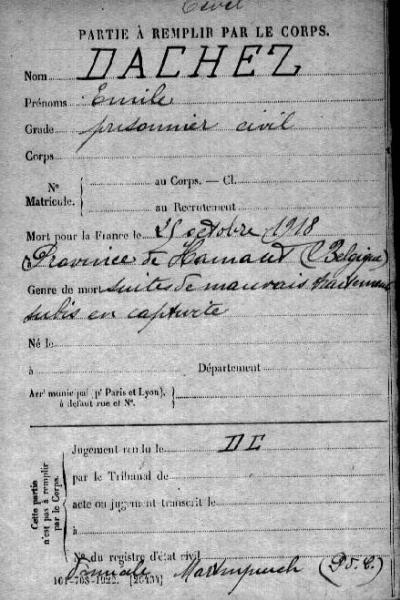 Civil
PARTIE À REMPLIR PAR LE CORPS.
Nom DACHEZ
Prénoms Emile
Grade prisonnier civil
Corps
Nº Matricule.
au Corps. — Cl.
au Recrutement
Mort pour la France le 25 octobre 1918
à Province de Hainaut (Belgique)
Genre de mort suites de mauvais traitements
subis en captivité
Né le
à Département
Arrt municipal (pr Paris et Lyon),
à défaut rue et Nº.
Cette partie
n'est pas à remplir
par le Corps.
Jugement rendu le DC
par le Tribunal de
acte ou jugement transcrit le
à
Nº du registre d'état civil
Martinpuich (P.d.C.)
161-708-1922. [26434]